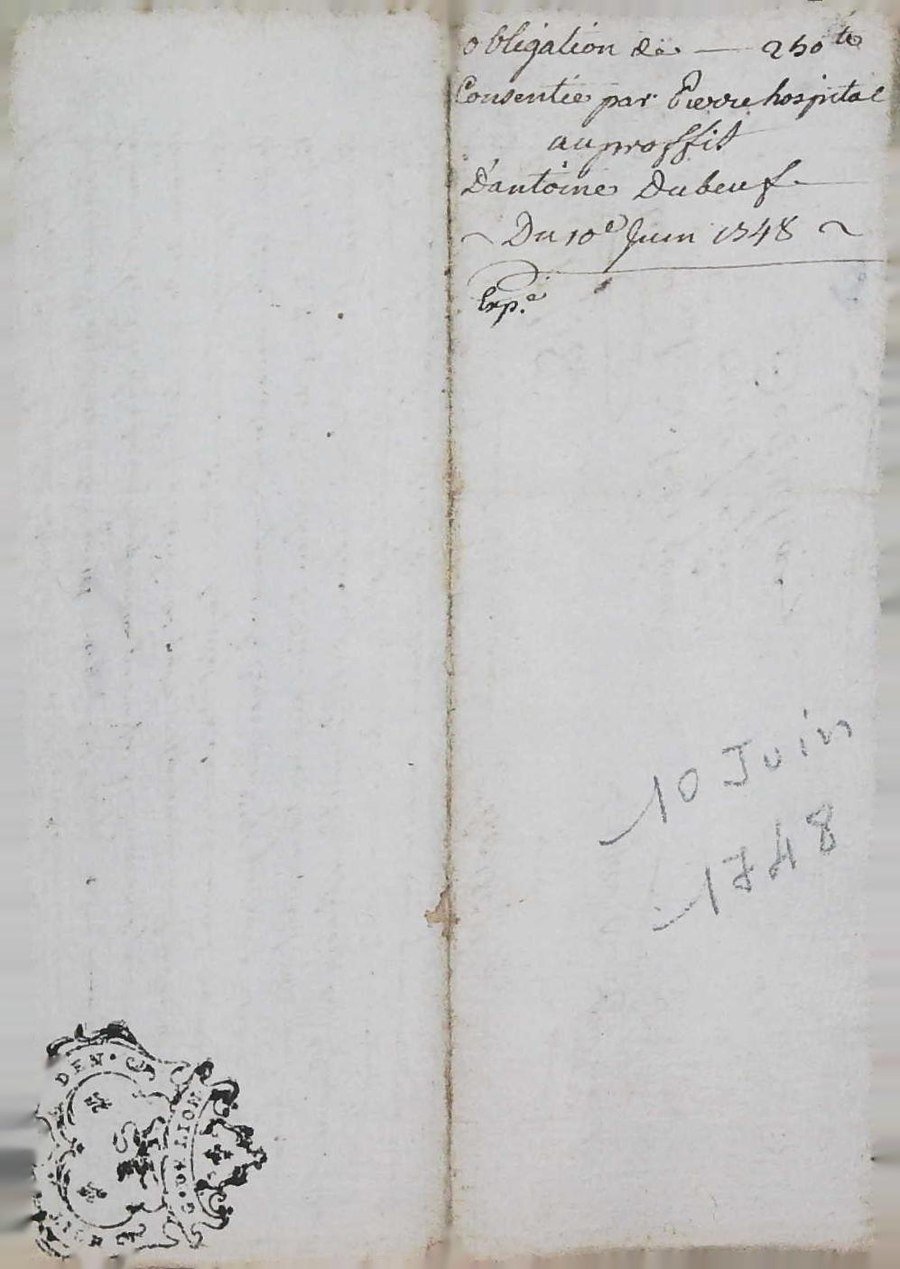 obligation de — 250 ᵗᵗ
Consentie par Pierre hospital
au proffit
D'antoine Dubeuf
~ Du 10ᵉ Juin 1748 ~
Exp.ᵉ
10 Juin
1748
DEN
LION